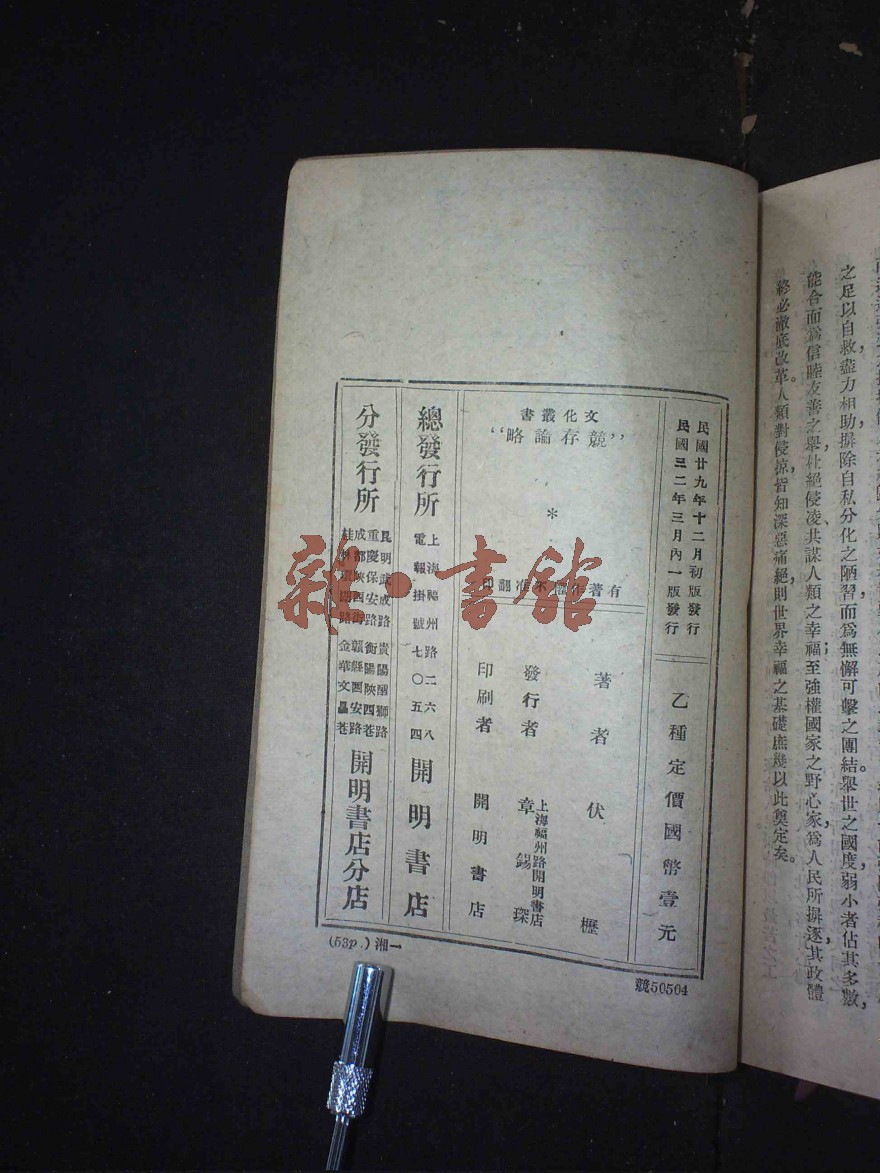 之足以自救,盡力相助,摒除自私分化之陋習,而爲無懈可擊之團結,舉世之國度,弱小者佔其多數,
能合而爲信睦友善之舉,杜絕侵凌,共謀人類之幸福;至強權國家之野心家,爲人民所摒逐,其政體
終必澈底改革。人類對侵掠,皆知深惡痛絕,則世界幸福之基礎,庶幾以此奠定矣。
民國廿九年十二月初版發行
民國三二年三月內一版發行
乙種定價國幣壹元
文化叢書
“競存論略”
*
有著作權不准翻印
著者 伏櫪
發行者 上海福州路開明書店 章錫琛
印刷者 開明書店
總發行所 上海福州路二六八 電報掛號七〇五四 開明書店
分發行所
昆明武成路 貴陽醒獅路
重慶保安路 衡陽陝西巷
成都陝西街 贛縣西安路
桂林環湖路 金華文昌巷
開明書店分店
(53p.)湘一
競50504
雜·書館